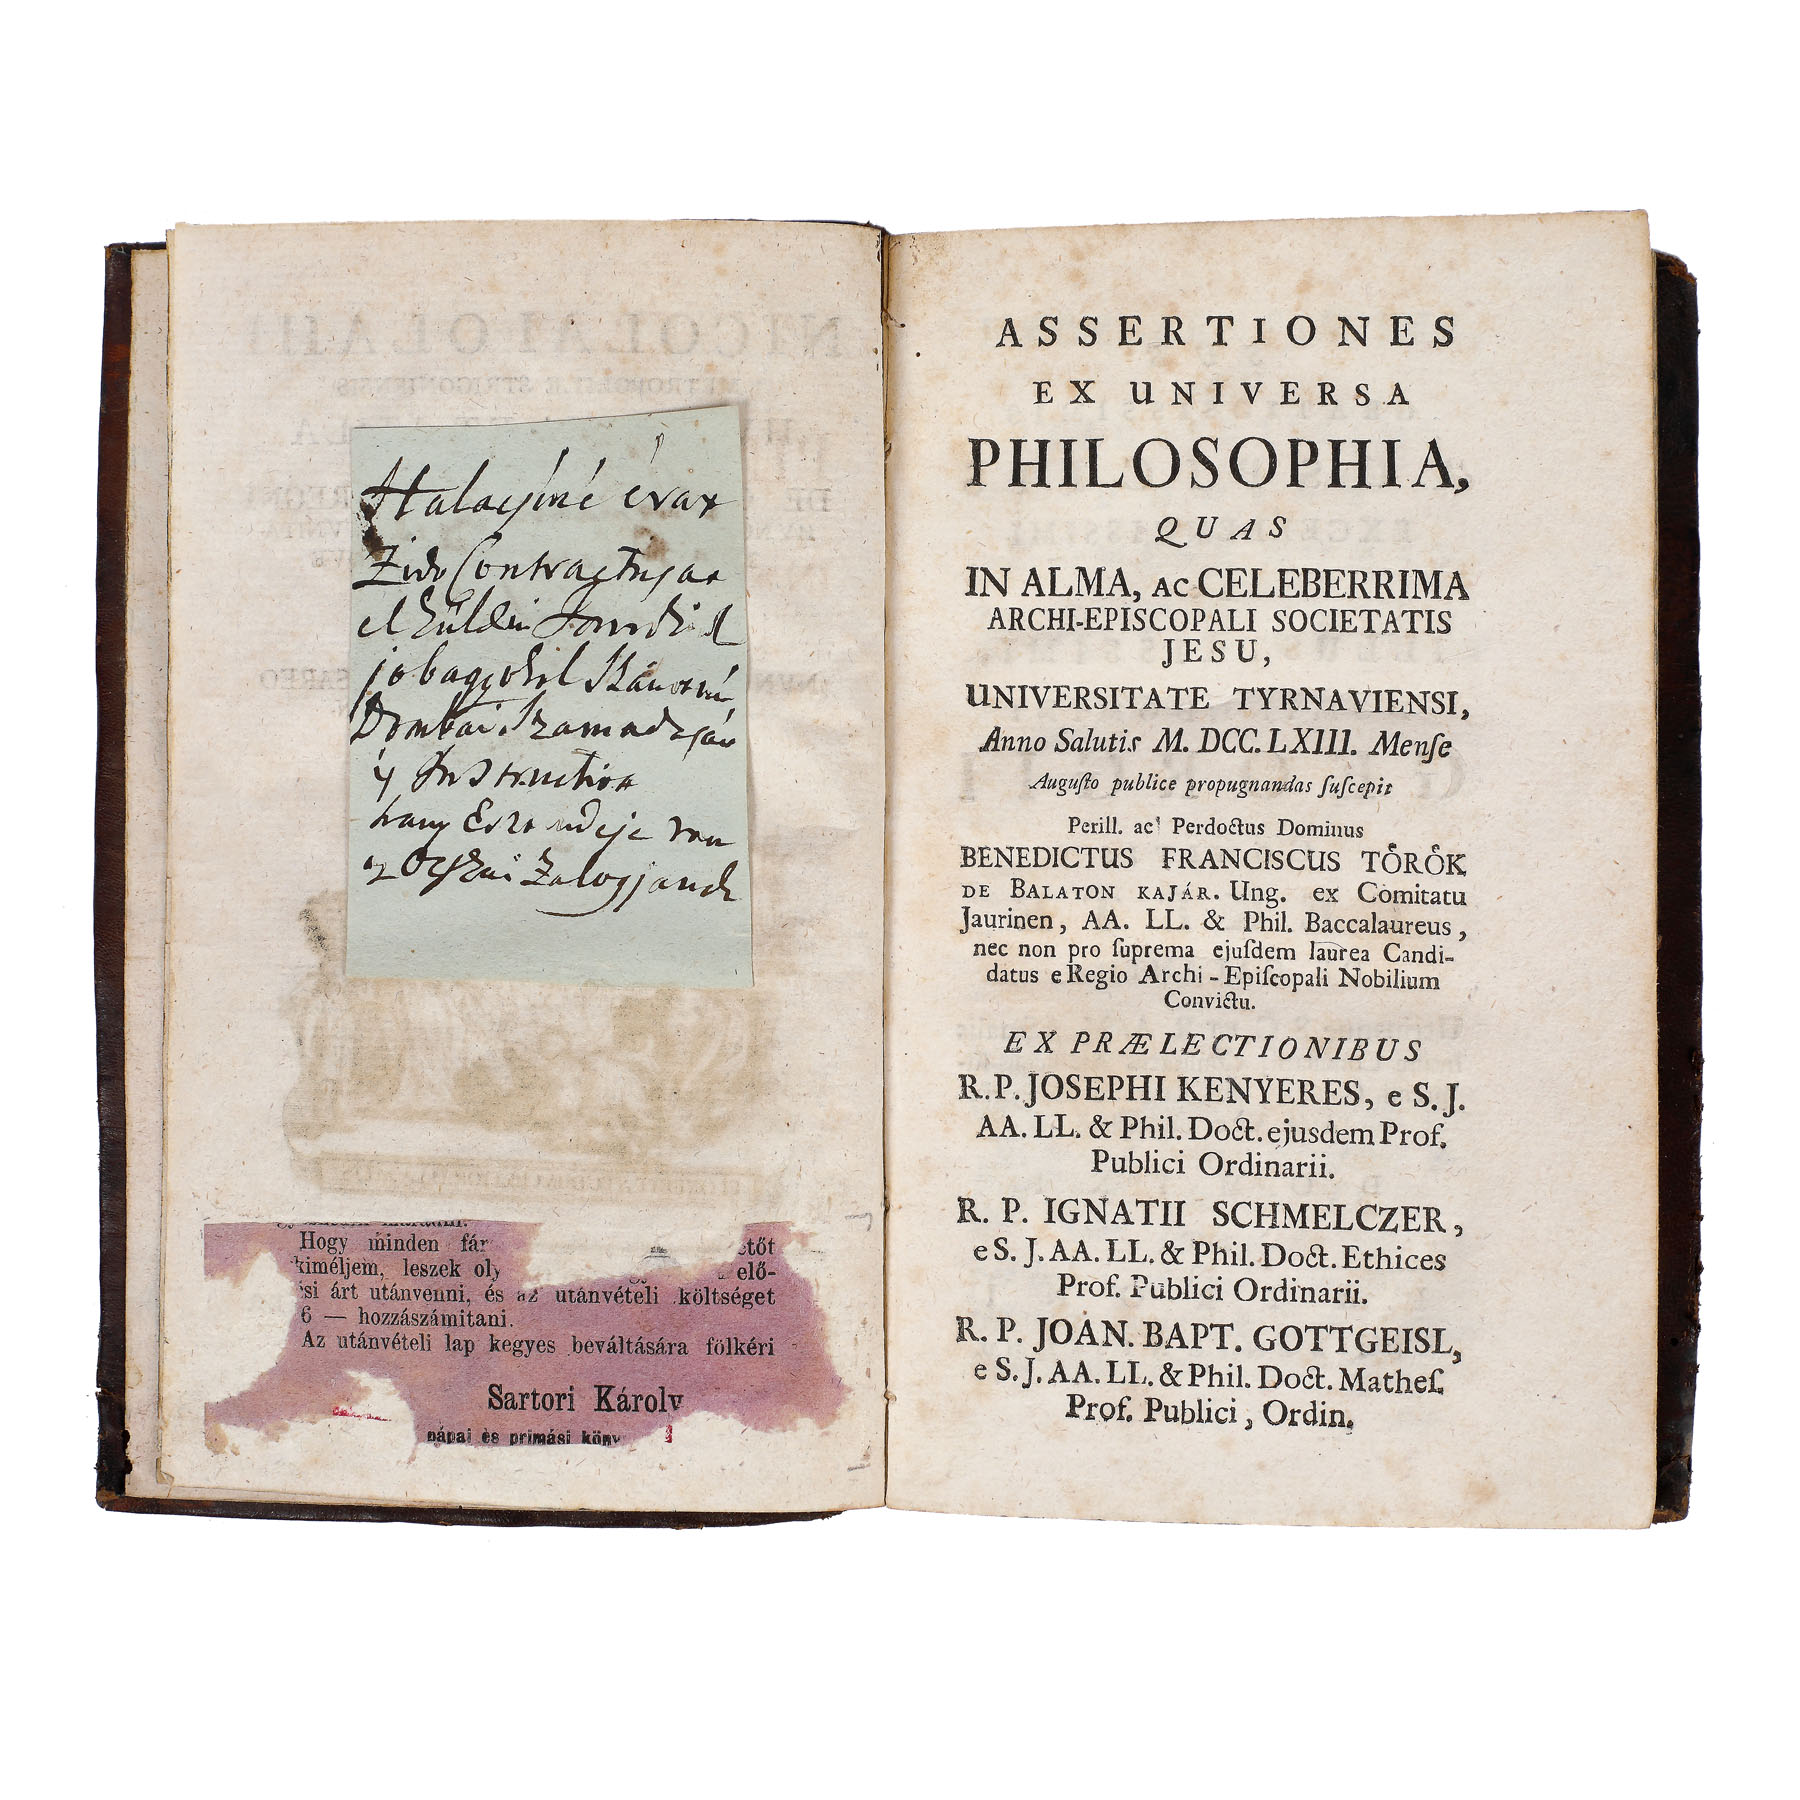 Halacsiné évax
Zido Contractusa
el küldi
jobagyokol
Dombai Szamadasán
Instructio
hany Eszendeje van
Zalogjanak
Hogy minden
kiméljem, leszek elő-
árt utánvenni, és az utánvételi költséget
6 — hozzászámitani.
Az utánvételi lap kegyes beváltására fölkéri
Sartori Károly
pápai és primási
ASSERTIONES
EX UNIVERSA
PHILOSOPHIA,
QUAS
IN ALMA, AC CELEBERRIMA
ARCHI-EPISCOPALI SOCIETATIS
JESU,
UNIVERSITATE TYRNAVIENSI,
Anno Salutis M. DCC. LXIII. Menſe
Auguſto publice propugnandas ſuſcepit
Perill. ac Perdoctus Dominus
BENEDICTUS FRANCISCUS TÖRÖK
DE BALATON KAJÁR. Ung. ex Comitatu
Jaurinen, AA. LL. & Phil. Baccalaureus,
nec non pro ſuprema ejuſdem laurea Candi-
datus e Regio Archi-Epiſcopali Nobilium
Convictu.
EX PRÆLECTIONIBUS
R. P. JOSEPHI KENYERES, e S. J.
AA. LL. & Phil. Doct. ejusdem Prof.
Publici Ordinarii.
R. P. IGNATII SCHMELCZER,
e S. J. AA. LL. & Phil. Doct. Ethices
Prof. Publici Ordinarii.
R. P. JOAN. BAPT. GOTTGEISL,
e S. J. AA. LL. & Phil. Doct. Matheſ.
Prof. Publici, Ordin.